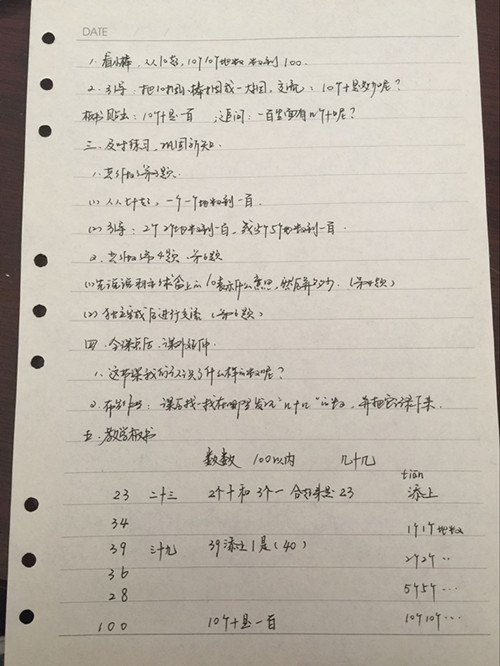 DATE
1. 看小棒，从10起，10个10个地数，数到100.
2. 引导：把10捆小棒捆成一大捆，交流：10个十是多少呢？
板书贴出：10个十是一百 追问：一百里面有几个十呢？
三、及时练习，巩固新知.
1. 完成 第3题.
(1) 从七十起，一个一个地数到一百.
(2) 引导：2个2个地数到一百，或5个5个地数到一百.
2. 完成 第4题 第6题
(1) 先说说 计数器上的10表示什么意思，然后 (第4题)
(2) 独立完成后进行交流 (第6题)
四、全课总结、课外延伸
1. 这节课我们认识了什么样的数呢？
2. 布置作业：课后找一找在哪里发现"几十几"的数，并把它读下来.
五、教学板书
数数 100以内 几十几
tiān
23 二十三 2个十和3个一合起来是23 添上
34 1个1个地数
39 三十九 39添上1是(40)
36 2个2个··
28 5个5个···
100 10个十是一百 10个10个···